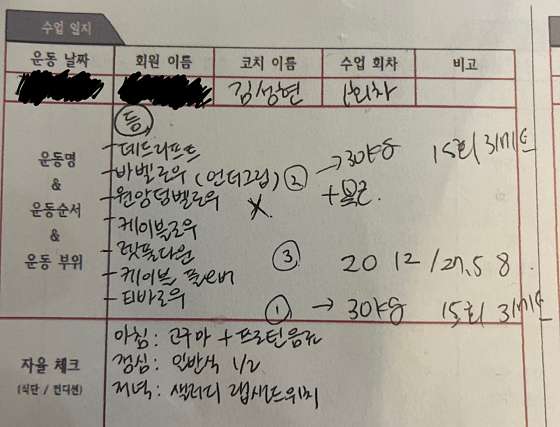 수업 일지
운동 날짜 회원 이름 코치 이름 수업 회차 비고
김성현 1회차
등
운동명 & 운동순서 & 운동 부위
-데드리프트
-바벨로우 (언더그립) ② → 30kg 15회 3세트
-원암덤벨로우 X +
-케이블로우
-랫풀다운 ③ 20 12 / 27.5 8
-케이블 풀오버
-티바로우 ① → 30kg 15회 3세트
자율 체크
(식단 / 컨디션)
아침: 고구마 + 프로틴음료
점심: 일반식 1/2
저녁: 샐러디 랩샌드위치